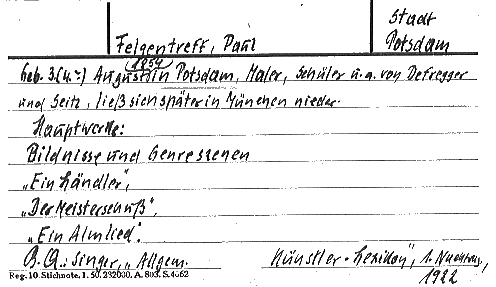 Stadt
Felgentreff, Paul Potsdam
1854
Geb. 3. (4.?) August in Potsdam, Maler, Schüler u. a. von Defregger
und Seitz, ließ sich später in München nieder.
Hauptwerke:
Bildnisse und Genreszenen
„Ein Händler",
„Der Meisterschuß",
„Ein Almlied".
B. Q.: Singer, „Allgem. Künstler-Lexikon", 1. Nachtrag,
1922
Reg. 10. Stichnote. I. 50. 232030. A. 803. S. 4662